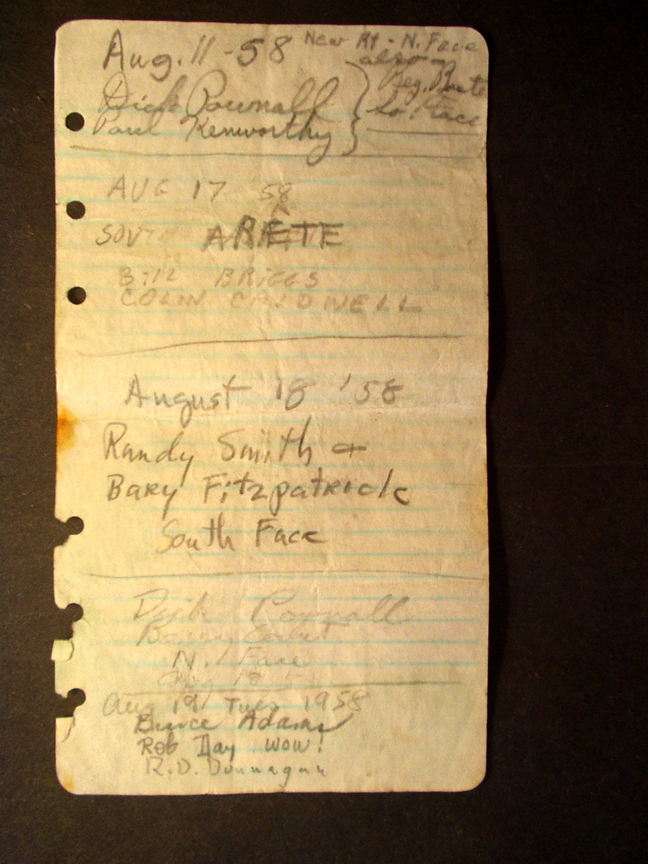 Aug. 11 - 58 New Rt - N. Face
also -
Reg. Route
So Face
Dick Pownall
Paul Kenworthy
AUG 17 '58
SOUTH ARETE
BILL BRIGGS
COLIN CALDWELL
August 18 '58
Randy Smith +
Bary Fitzpatrick
South Face
Dick Pownall
Barry Corbet
N. Face
Aug 18
Aug 19 / Tues 1958
Bruce Adams
Rob Day WOW!
R.D.